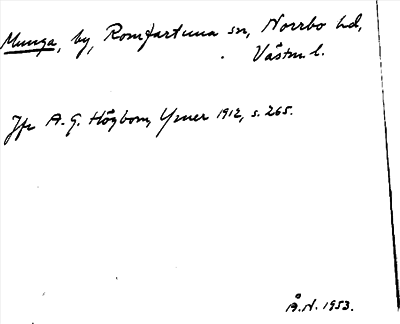 Munga, by, Romfartuna sn, Norrbo hd,
Västm l.
Jfr A. G. Högbom, Ymer 1912, s. 265.
Å.N. 1953.